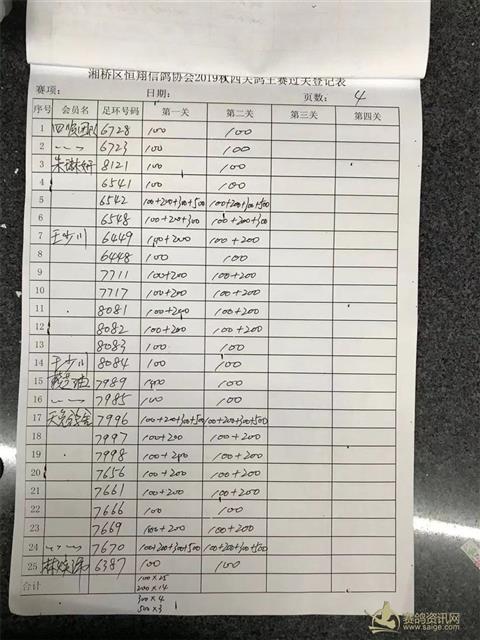 湘桥区恒翔信鸽协会2019秋四关鸽王赛过关登记表
赛项: 日期: 页数: 4
序号 会员名 足环号码 第一关 第二关 第三关 第四关
1 四顺团队 6728 100 100
2 〃 6723 100 100
3 8121 100 100
4 6541 100 100
5 6542 100+200+300+500 100+200+300+500
6 6548 100+200+300 100+200+300
7 王少川 6449 100+200 100+200
8 6448 100 100
9 7711 100+200 100+200
10 7717 100+200 100+200
11 8081 100+200 100+200
12 8082 100+200 100+200
13 8083 100 100
14 王少川 8084 100 100
15 7989 100 100
16 〃 7985 100 100
17 7996 100+200+300+500 100+200+300+500
18 7997 100+200 100+200
19 7998 100+200 100+200
20 7656 100+200 100+200
21 7661 100+200 100+200
22 7666 100 100
23 7669 100+200 100+200
24 〃 7670 100+200+300+500 100+200+300+500
25 6387 100 100
合计 100×25
200×14
300×4
500×3
赛鸽资讯网
www.saige.com